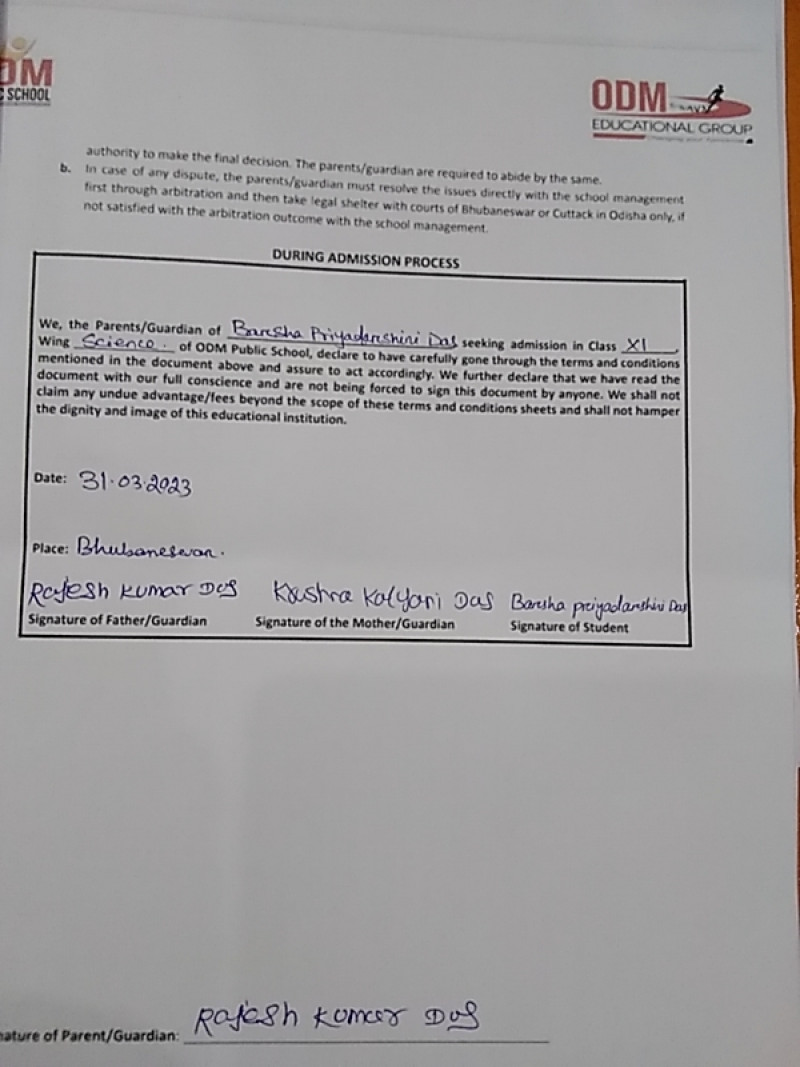 DM
C SCHOOL
ODM
EDUCATIONAL GROUP
authority to make the final decision. The parents/guardian are required to abide by the same.
b. In case of any dispute, the parents/guardian must resolve the issues directly with the school management
first through arbitration and then take legal shelter with courts of Bhubaneswar or Cuttack in Odisha only, if
not satisfied with the arbitration outcome with the school management.
DURING ADMISSION PROCESS
We, the Parents/Guardian of Barsha Priyadarshini Das seeking admission in Class XI,
Wing Science. of ODM Public School, declare to have carefully gone through the terms and conditions
mentioned in the document above and assure to act accordingly. We further declare that we have read the
document with our full conscience and are not being forced to sign this document by anyone. We shall not
claim any undue advantage/fees beyond the scope of these terms and conditions sheets and shall not hamper
the dignity and image of this educational institution.
Date: 31.03.2023
Place: Bhubaneswar.
Rajesh Kumar Das Kalyani Das Barsha priyadarshini Das
Signature of Father/Guardian Signature of the Mother/Guardian Signature of Student
nature of Parent/Guardian: Rajesh Kumar Das